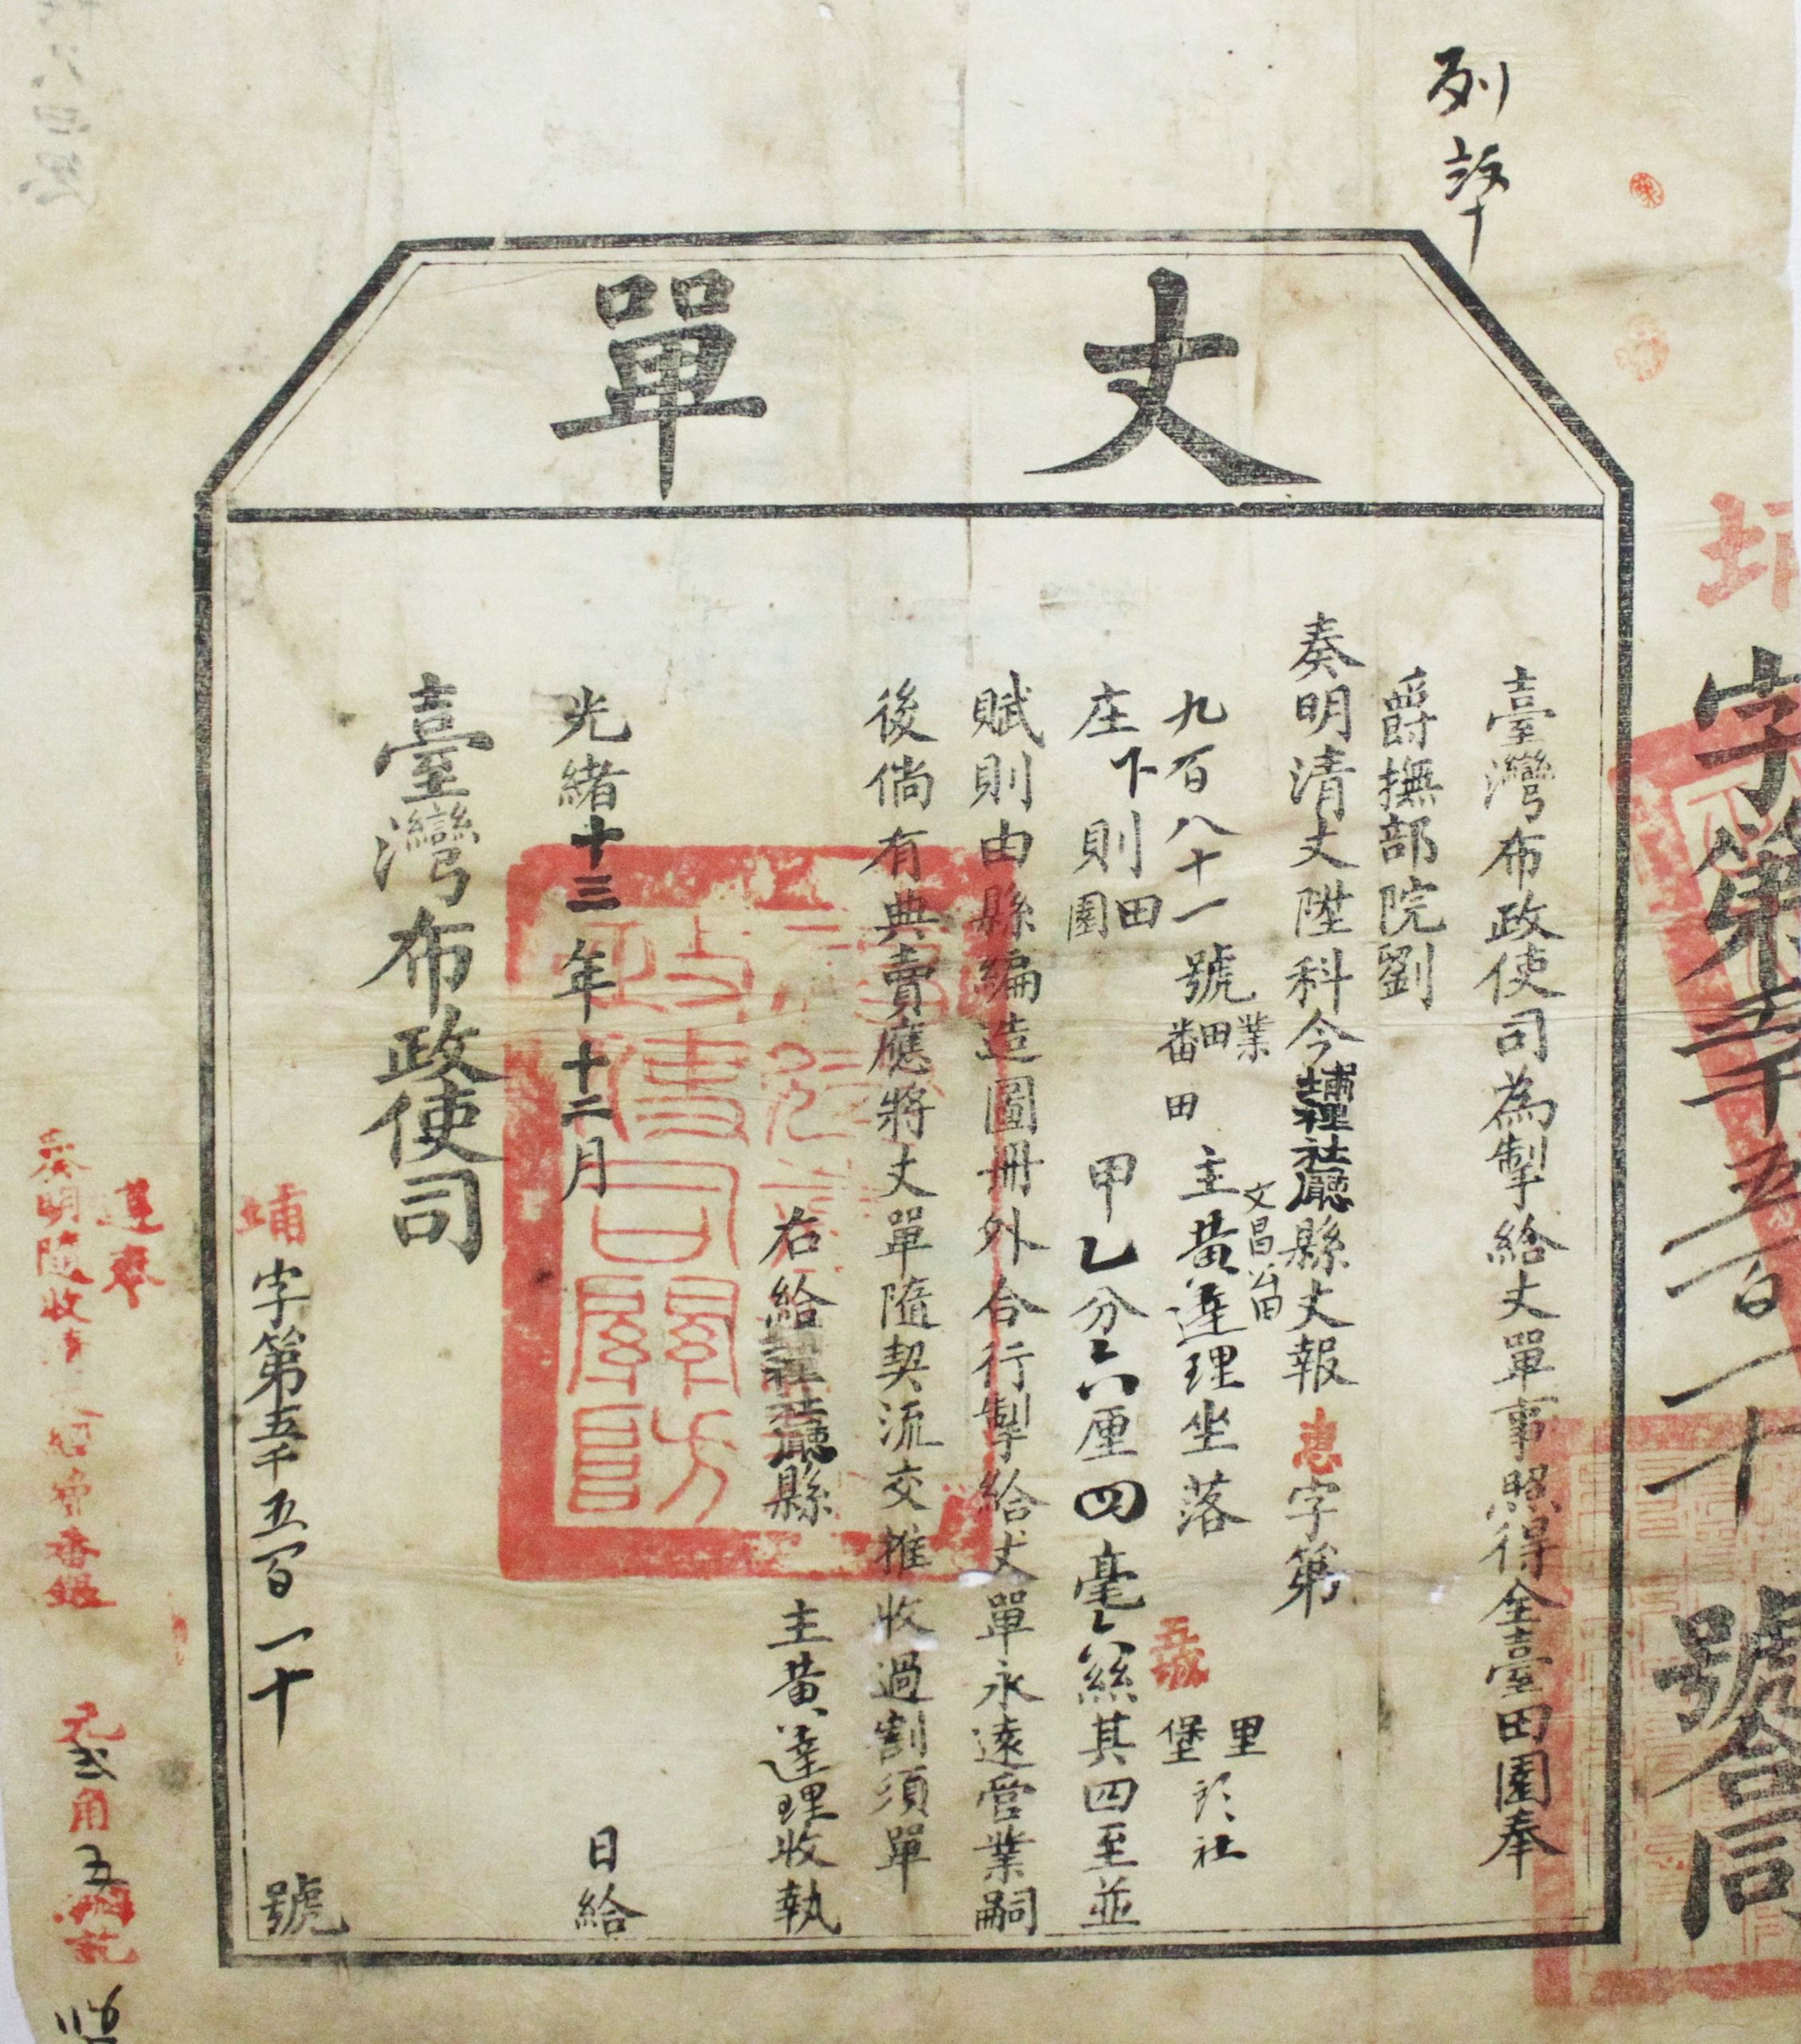 丈單
臺灣布政使司為掣給丈單事照得全臺田園奉
爵撫部院劉
奏明清丈陞科今埔裡社廳縣丈報惠字第
九百八十一號業田番田主文昌黃達理坐落五城里堡社
庄下則田園甲乙分六厘四毫絲其四至並
賦則由縣編造圖冊外合行掣給丈單永遠管業嗣
後倘有典賣應將丈單隨契流交推收過割須單
右給埔裡社廳縣主黃達理收執
光緒十三年十二月日給
臺灣布政使司
埔字第五千五百一十號
字第五千五百一十號合同
遵奉
奏明隨收
番銀
元貳角五